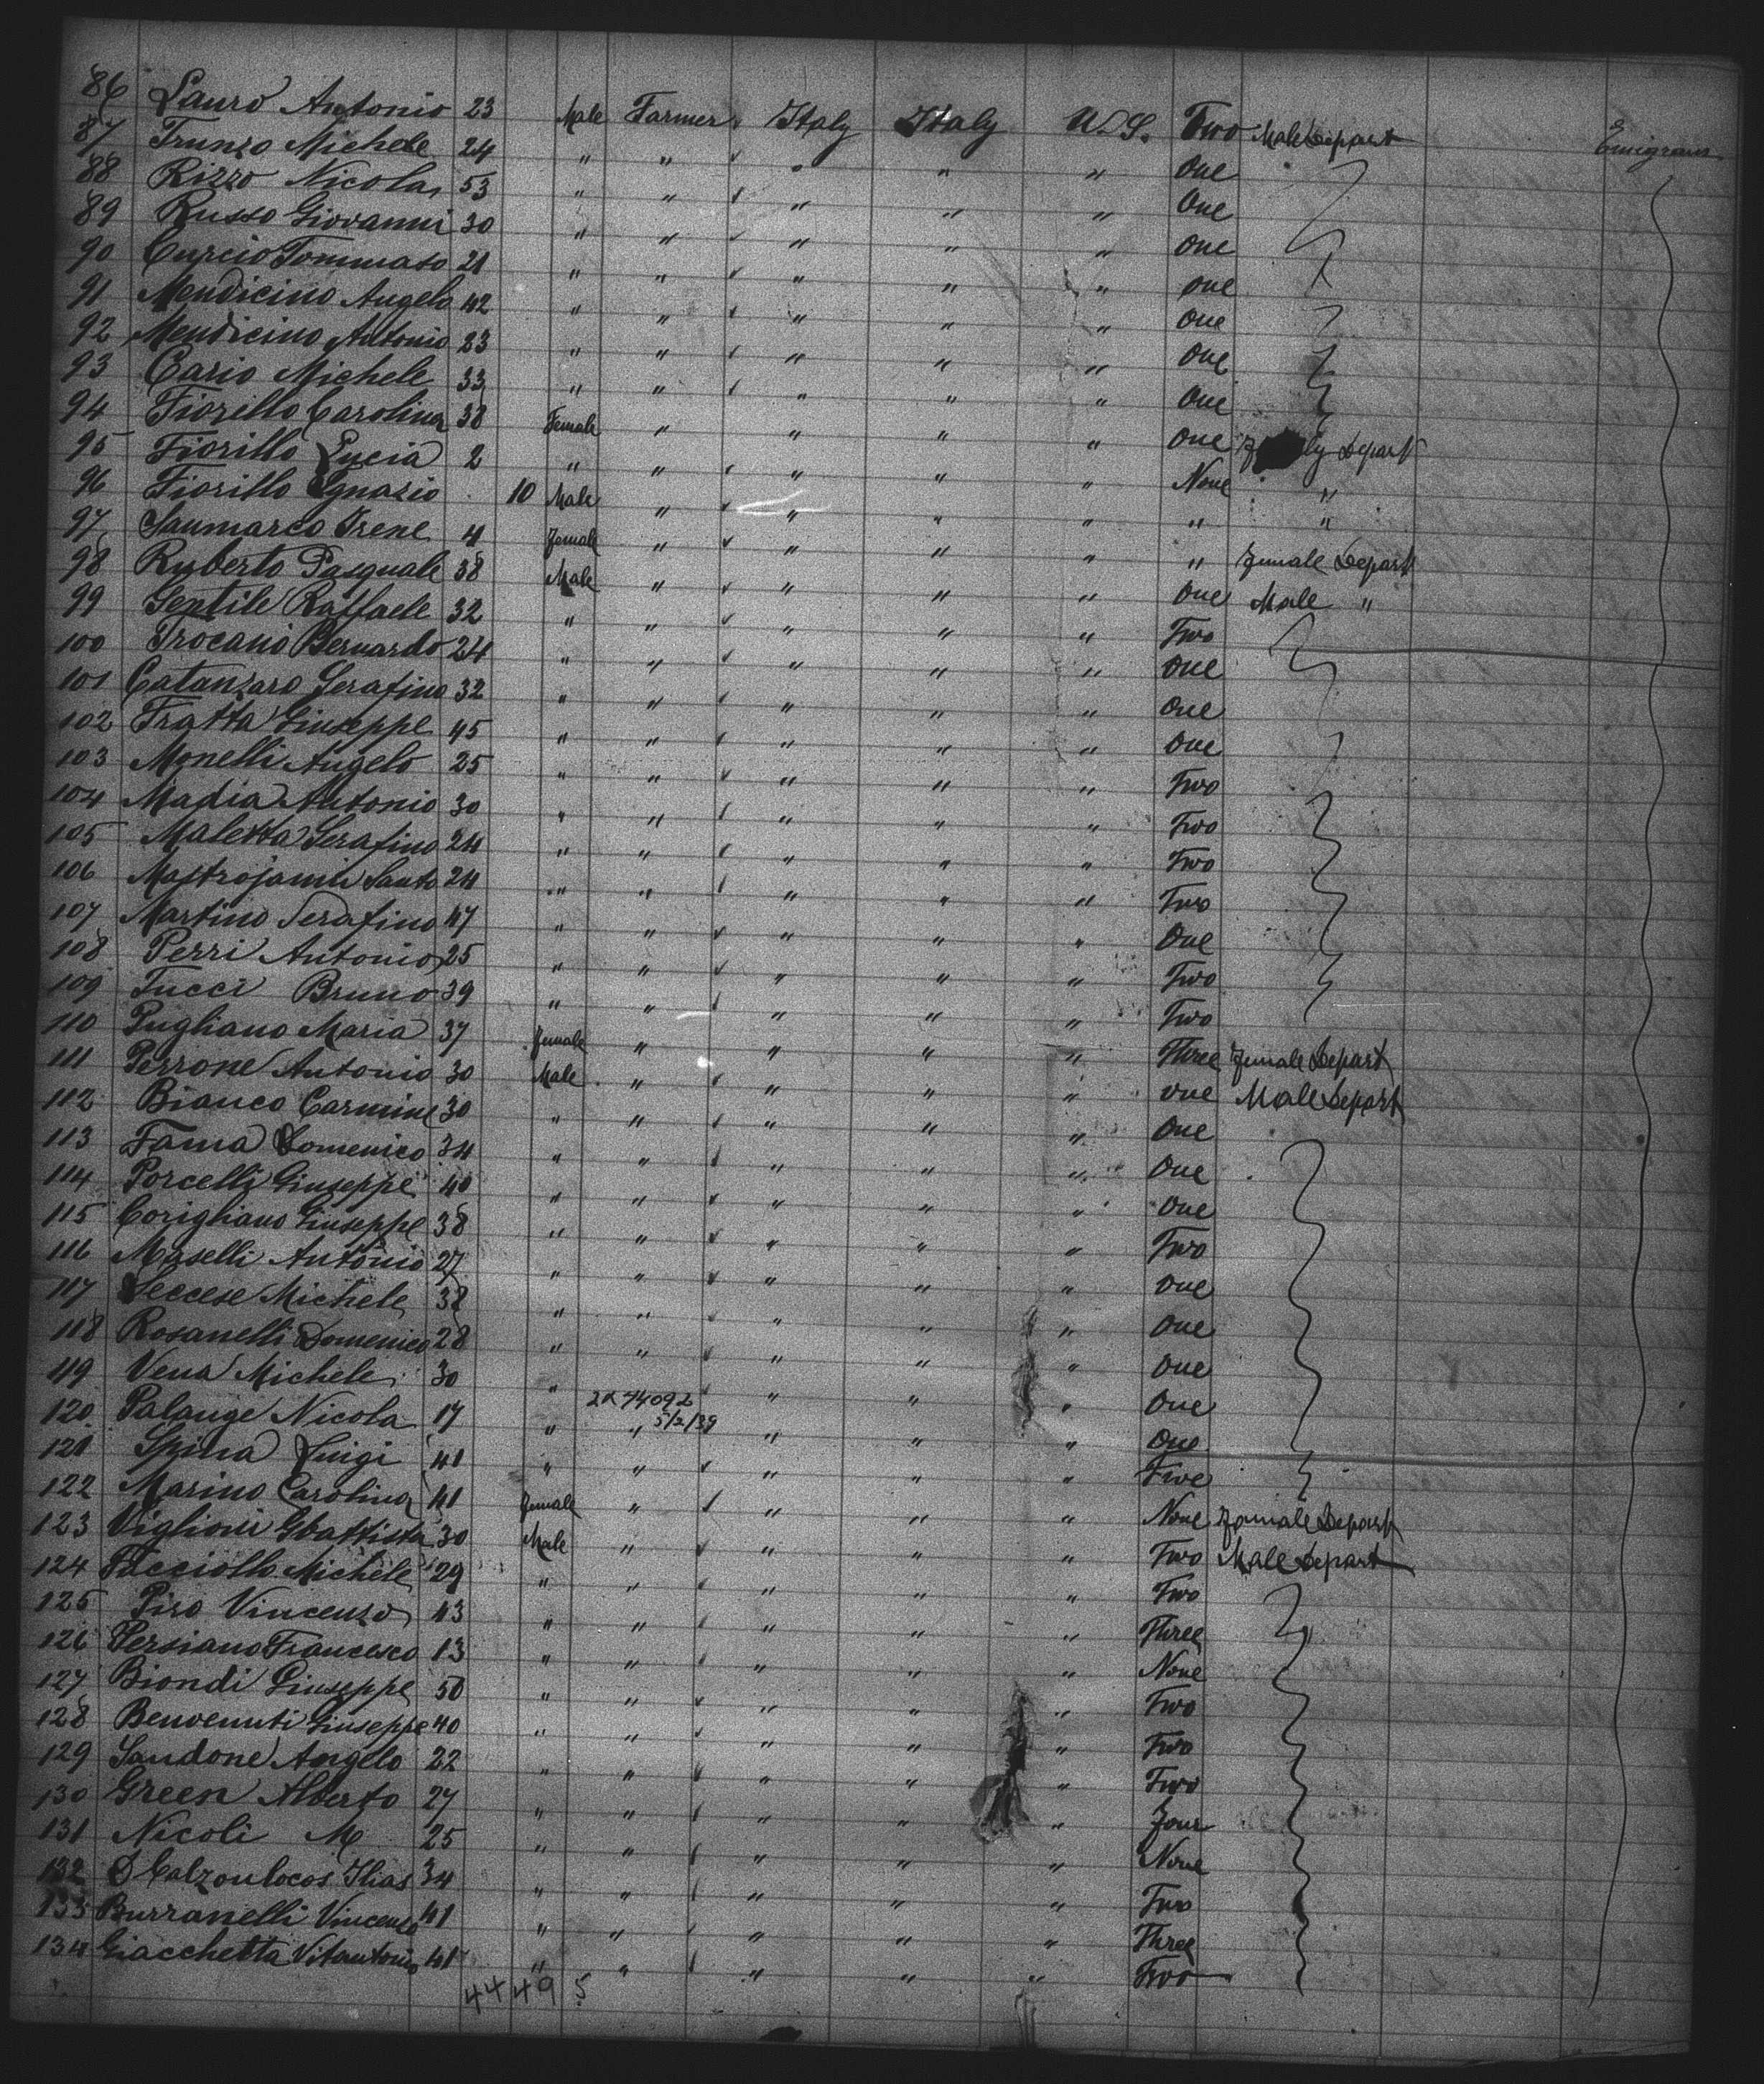 86 Lauro Antonio 23 Male Farmer Italy Italy U.S. Two Male Depart Emigrans
87 Trunzo Michele 24 " " " " " One
88 Rizzo Nicola 53 " " " " " One
89 Russo Giovanni 30 " " " " " One
90 Curcio Tommaso 21 " " " " " One
91 Mendicino Angelo 42 " " " " " One
92 Mendicino Antonio 23 " " " " " One
93 Cario Michele 33 " " " " " One
94 Fiorillo Carolina 38 Female " " " " One Depart
95 Fiorillo Lucia 2 " " " " " None "
96 Fiorillo Ignazio 10 Male " " " " " "
97 Sanmarco Irene 4 Female " " " " " Female Depart
98 Ruberto Pasquale 38 Male " " " " One Male "
99 Gentile Raffaele 32 " " " " " Two
100 Trocano Bernardo 24 " " " " " One
101 Catanzaro Serafino 32 " " " " " One
102 Fratta Giuseppe 45 " " " " " One
103 Monelli Angelo 25 " " " " " Two
104 Madia Antonio 30 " " " " " Two
105 Maletta Serafino 24 " " " " " Two
106 Mastrojanni Santo 24 " " " " " Two
107 Martino Serafino 47 " " " " " One
108 Perri Antonio 25 " " " " " Two
109 Tucci Bruno 39 " " " " " Two
110 Pugliano Maria 37 Female " " " " Three Female Depart
111 Perrone Antonio 30 Male " " " " One Male Depart
112 Bianco Carmine 30 " " " " " One
113 Fama Domenico 34 " " " " " One
114 Porcelli Giuseppe 40 " " " " " One
115 Corigliano Giuseppe 38 " " " " " Two
116 Maselli Antonio 27 " " " " " One
117 Leccese Michele 38 " " " " " One
118 Rosanelli Domenico 28 " " " " " One
119 Vena Michele 30 " 2X74092 " " " One
120 Palange Nicola 17 " " 5/2/39 " " " One
121 Spina Luigi 41 " " " " " Five
122 Marino Carolina 41 Female " " " " None Female Depart
123 Viglioni Gbattista 30 Male " " " " Two Male Depart
124 Facciollo Michele 29 " " " " " Two
125 Piro Vincenzo 43 " " " " " Three
126 Persiano Francesco 13 " " " " " None
127 Biondi Giuseppe 50 " " " " " Two
128 Benvenuti Giuseppe 40 " " " " " Two
129 Sandone Angelo 22 " " " " " Two
130 Green Alberto 27 " " " " " Four
131 Nicoli M 25 " " " " " None
132 Calzoulocos Ilias 34 " " " " " Two
133 Burranelli Vincenzo 41 " " " " " Three
134 Giacchetta Vitantonio 41 " " " " " Two
4449 5